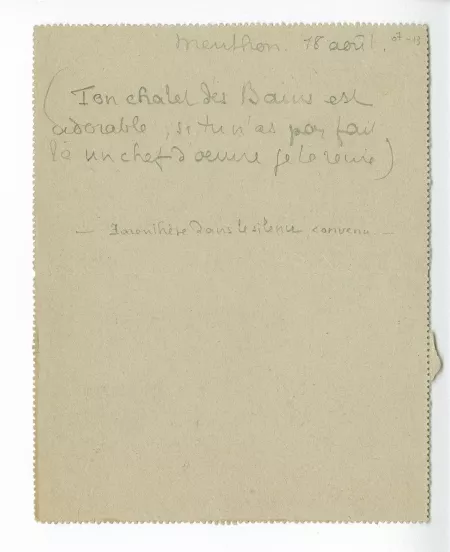 Menthon. 18 août. 07-13
(Ton chalet des Bains est
adorable, si tu n'as pas fait
là un chef d'oeuvre je te renie)
— dans le silence convenu —